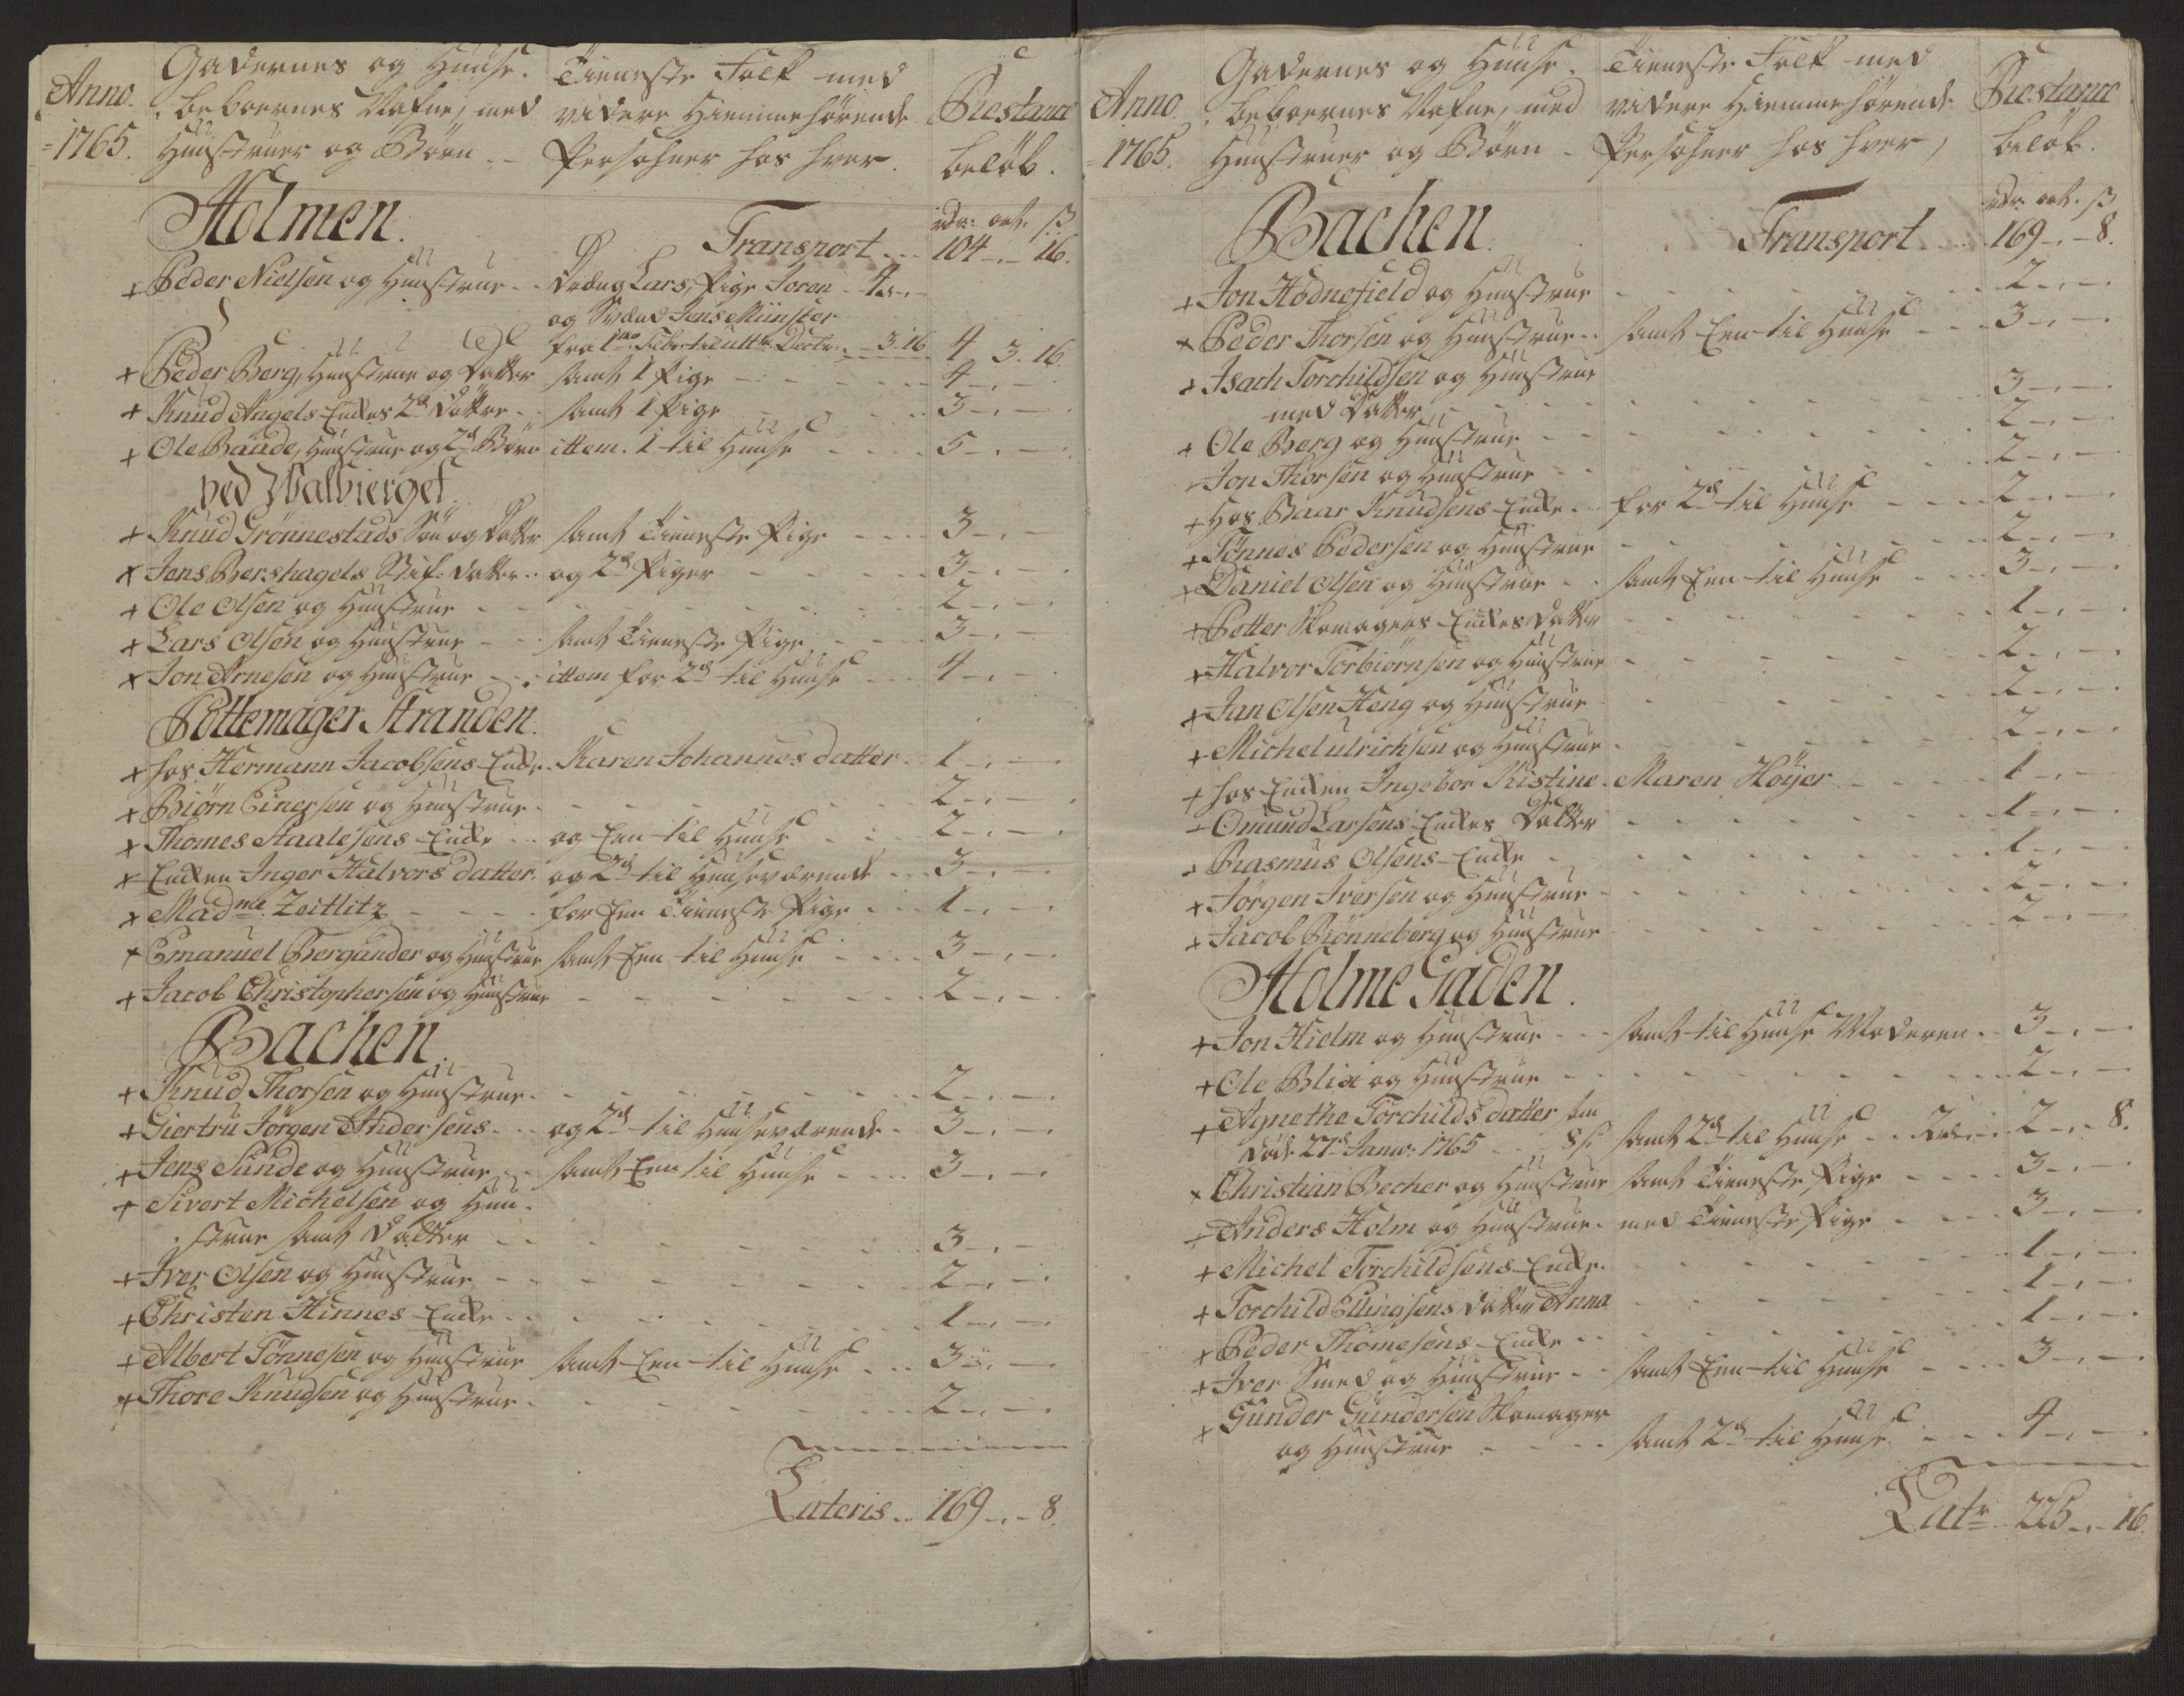 Anno.
=1765.
Gadernes og Huuse-
beboernes Nafne, med
Hustruer og Börn -
Tieneste Folk med
videre Hiemmehörende
Persohner hos hver.
Restance
belöb.
Holmen.
Transport - - -
rdr. ort. ß
104 -.- 16.
+ Peder Nielsen og Huustrue - - Dreng Lars, Pige Joren - 4 -.-
og Svend Jens Münster
fra 1mo Febr til ultim Decbr. - 3.16 4 3. 16
+ Peder Berg, Huustrue og Datter samt 1 Pige - - - - - 4 -.-
+ Knud Angels Enkes 2de Döttre - - samt 1 Pige - - - - 3 -.-
+ Ole Baude, Huustrue og 2de Börn ittem. 1 til Huuse - - - - 5 -.-
ved Walbierget.
+ Knud Grönnestads Sön og Datter samt Tieneste Pige - - - - 3 -.-
+ Jens Bershagels Stif-Datter - - og 2de Piger - - - - 3 -.-
+ Ole Olsen og Huustrue - - - - - - 2 -.-
+ Lars Olsen og Huustrue - - - samt Tieneste Pige - - - 3 -.-
+ Jon Arnesen og Huustrue - - - ittem for 2de til Huuse - - 4 -.-
Pottemager Stranden.
+ hos Hermann Jacobsens Enke - Karen Johannes datter - 1 -.-
+ Biörn Einersen og Huustrue - - - - - - 2 -.-
+ Thomes Staalesens Enke - - - og Een til Huuse - - 2 -.-
+ Enken Inger Halvors datter - og 2de til Huuseværende - - 3 -.-
+ Madme Zeitlitz - - - - for Een Tieneste Pige - - - 1 -.-
+ Emanuel Bergander og Huustrue samt Een til Huuse - - - 3 -.-
+ Jacob Christophersen og Huustrue - - - - - - 2 -.-
Bachen.
+ Knud Thorsen og Huustrue - - - - - - 2 -.-
+ Giertru Jörgen Andersens - - - og 2de til Huuseværende - 3 -.-
+ Jens Sunde og Huustrue - - samt Een til Huuse - - - - 3 -.-
+ Sivert Michelsen og Huu-
strue samt Datter - - - - - - - 3 -.-
+ Iver Olsen og Huustrue - - - - - - 2 -.-
+ Christen Hinnes Enke - - - - - - 1 -.-
+ Albert Tönnesen og Huustrue samt Een til Huuse - - - 3 -.-
+ Thore Knudsen og Huustrue - - - - - - 2 -.-
Lateris - - 169 -.- 8.
Anno.
=1765.
Gadernes og Huuse-
beboernes Nafne, med
Hustruer og Börn -
Tieneste Folk med
videre Hiemmehörende
Persohner hos hver,
Restance
belöb.
Bachen.
Transport - - -
rdr. ort. ß
169 -.- 8.
+ Jon Hödnefield og Huustrue - - - - - 2 -.-
+ Peder Thorsen og Huustrue - - samt Een til Huuse - - - - 3 -.-
+ Isach Torchildsen og Huustrue
med Datter - - - - - - - 3 -.-
+ Ole Berg og Huustrue - - - - - - 2 -.-
- Jon Thorsen og Huustrue - - - - - - 2 -.-
+ Hos Baar Knudsens Enke - for 2de til Huuse - - - - 2 -.-
+ Tönnes Pedersen og Huustrue - - - - - - 2 -.-
+ Daniel Olsen og Huustrue - - samt Een til Huuse - - - 3 -.-
+ Petter Skomagers Enkes Datter - - - - - - 1 -.-
+ Halvor Torbiörnsen og Huustrue - - - - - - 2 -.-
+ Jan Olsen Heng og Huustrue - - - - - - 2 -.-
+ Michel Ulrichsen og Huustrue - - - - - - 2 -.-
+ hos Enken Ingebor Kistine - Maren Höijer - - - - 1 -.-
- Omund Larsens Enkes Datter - - - - - - 1 -.-
+ Rasmus Olsens Enke - - - - - - 1 -.-
+ Jörgen Iversen og Huustrue - - - - - - 2 -.-
+ Jacob Rönneberg og Huustrue - - - - - - 2 -.-
Holme Gaden.
+ Jon Hielm og Huustrue - - - samt til Huuse Moderen - - 3 -.-
+ Ole Blix og Huustrue - - - - - - 2 -.-
+ Agnethe Torchilds datter som
döde 27de Janv. 1765 - - - 8 ß samt 2de til Huuse - - 2rd. - 2 -.- 8.
+ Christian Becher og Huustrue samt Tieneste Pige - - - - 3 -.-
+ Anders Holm og Huustrue - med Tieneste Pige - - - - 3 -.-
+ Michel Torchildsens Enke - - - - - - 1 -.-
+ Torchild Ellingsens Datter Anna - - - - - - 1 -.-
+ Peder Thomesens Enke - - - - - - 1 -.-
+ Iver Smed og Huustrue - - samt Een til Huuse - - - - 3 -.-
+ Gunder Gundersen Skomager
og Huustrue - - - - samt 2de til Huuse - - - - 4 -.-
Latr. 225 -.- 16.